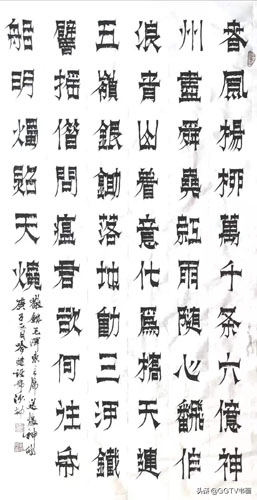 春風楊柳萬千条六億神
州盡舜堯紅雨隨心翻作
浪青山着意化為橋天連
五嶺銀鋤落地動三河鐵
臂摇借問瘟君欲何往帋
船明燭照天燒
毛澤東主席送瘟神
庚子
头条 @GGTV书画